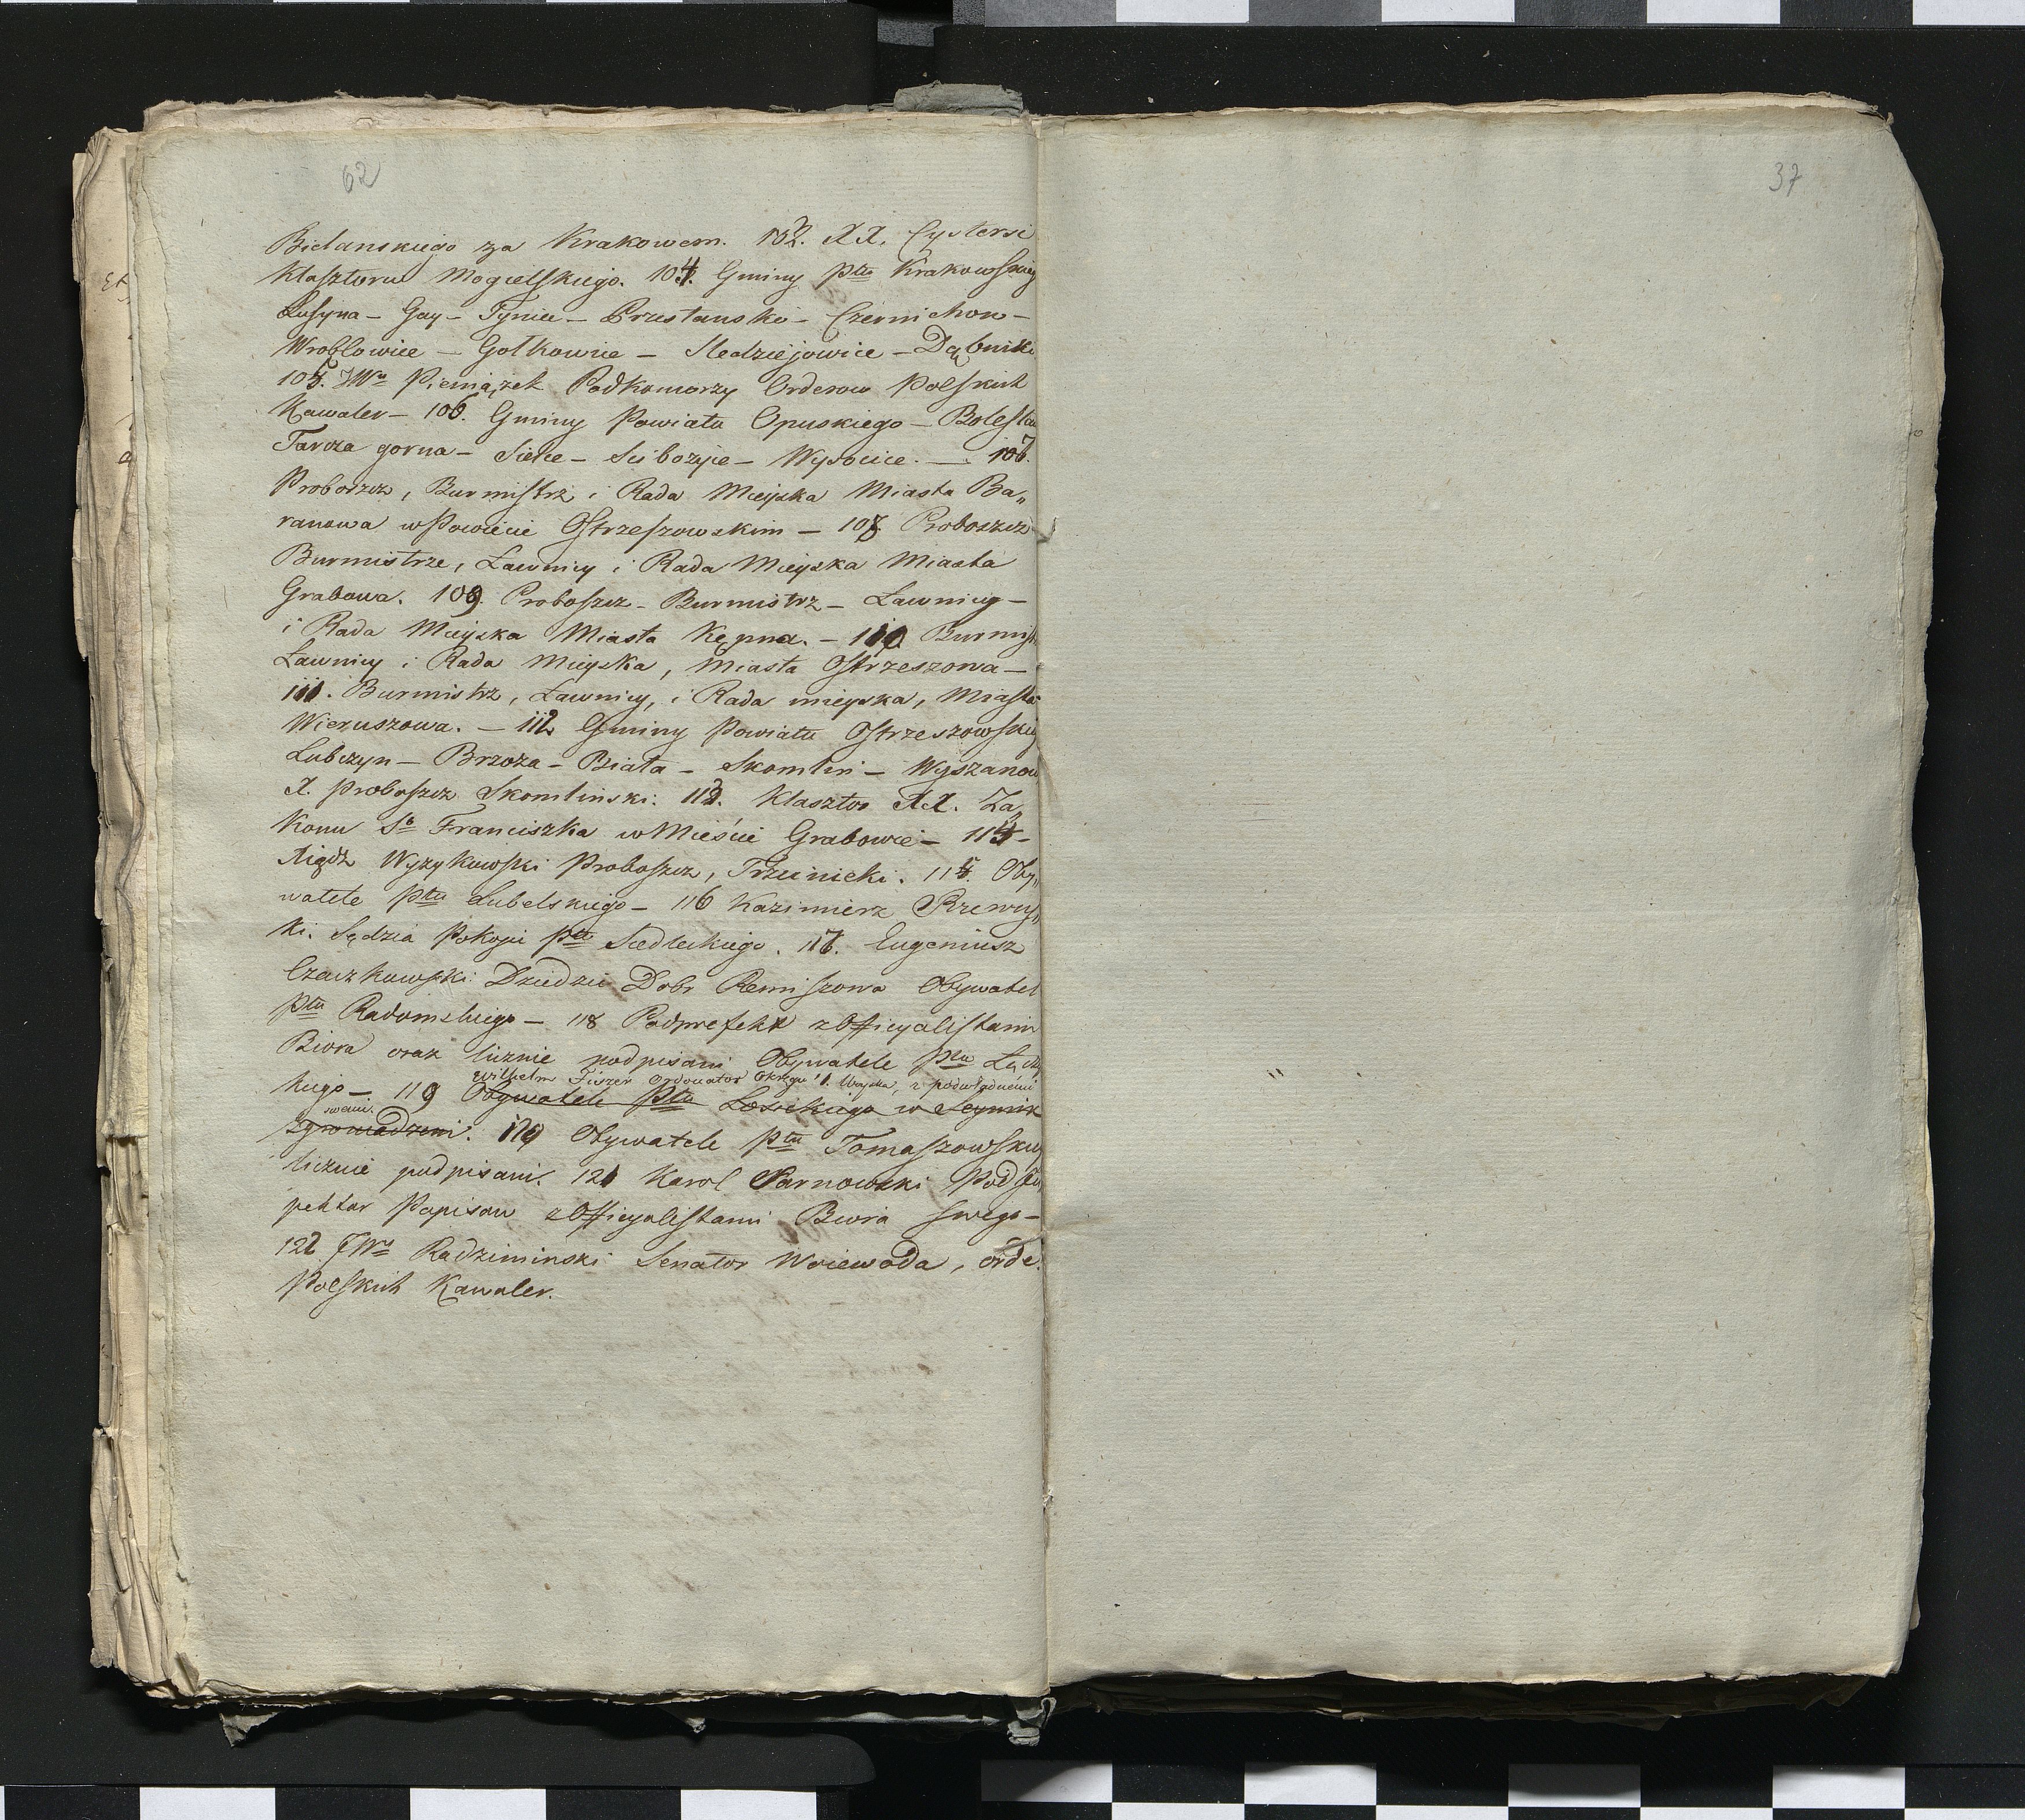 62
Bielanskiego za Krakowem. 103. XX. Cystersi
Klasztoru Mogielskiego. 104. Gminy Pttu Krakowskieg
Lusyna – Gay – Tyniec – Czernichow –
Wroblowice – Golkowice – Sledziejowice – Dąbniki
105. JWny Pieniążek Podkomorzy Orderow Polskich
Kawaler – 106. Gminy Powiatu Opuskiego – Bolesław
Tarcza gorna – Sieke – Scibozyce – Wysocice. – 107.
Proboszcz, Burmistrz i Rada Mieyska Miasta Ba„
ranowa w Powiecie Ostrzeszowskim – 108 Proboszcz
Burmistrze, Ławnicy i Rada Mieyska Miasta
Grabowa. 109. Proboszcz – Burmistrz – Ławnicy –
i Rada Mieyska Miasta Kępna. – 110 Burmis
Ławnicy i Rada Mieyska, Miasta Ostrzeszowa –
111. Burmistrz, Ławnicy, i Rada mieyska, Miasta
Wieruszowa. – 112 Gminy Powiatu Ostrzeszowskieg
Lubczyn – Brzoza – Biała – Skomlin – Wyszanow
X. Proboszcz Skomlinski. 113. Klasztor XX. Za„
konu Sgo Franciszka w Mieście Grabowie – 114 –
Xiądz Wyzykowski Proboszcz, Trzcinicki. 115. Oby„
watele Pttu Lubelskiego – 116 Kazimierz Rzewus„
ki. Sędzia Pokoju Pttu Siedleckiego. 117. Eugeniusz
Czaczkowski Dziedzic Dobr Remiszowa Obywatel
Pttu Radomskiego – 118 Podprefekt z Officyalistami
Biora oraz licznie podpisani Obywatele Pttu Łęczy
Wilhelm Fiszer Ordonator Okręgu 1. Woyska, z podwładnemi
kiego – 119 Obywatele Pttu Łosickiego w Seymik
swemi.
zgromadzeni. 120 Obywatele Pttu Tomaszowskieg
licznie podpisani. 121 Karol Tarnowski Pod
pektor Popisow z Officyalistami Biora swego –
122 JWny Radziminski Senator Woiewoda, orde.
Polskich Kawaler.
37